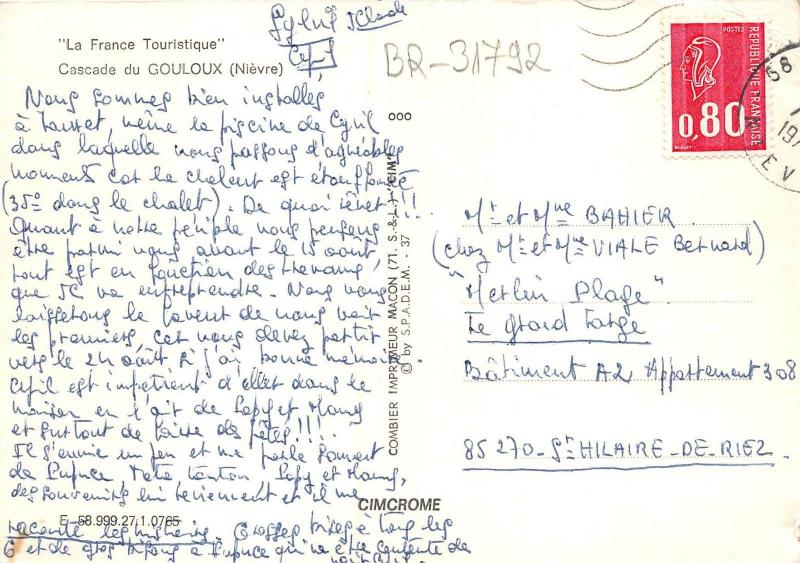 "La France Touristique"
Cascade du GOULOUX (Nièvre)
BR-31792
Nous sommes bien installés
à même la piscine de Cyril
dans laquelle nous passons d'agréables
moments car la chaleur est étouffante
(35° dans le chalet). De quoi rêver !!!
Quant à notre périple nous pensons
être parmi vous avant le 15 août,
tout est en fonction des travaux
que JC va entreprendre. Nous vous
laisserons le savent de nous voir
les premiers, car vous devez partir
vers le 24 août si j'ai bonne mémoire
Cyril est impatient d'aller dans la
maison en l'air de Papy et Mamy
et surtout de faire des fêtes !!!
Il s'ennuie un peu et me parle souvent
de Puce, tonton, Papy et Mamy,
des souvenirs lui reviennent et il me
raconte les histoires. Grosses bises à tous les
6 et de gros bisous à Puce qui va être contente de
E - 58.999.27.1.0765
CIMCROME
COMBIER IMPRIMEUR MACON (71. S.-&-L.) "CIM"
© by S.P.A.D.E.M. - 37
REPUBLIQUE FRANÇAISE
POSTES
0,80
BEQUET
58
197
EV
Mr et Mme BAHIER
(chez Mr et Mme VIALE Bernard)
"Merlin Plage"
Le grand Large
Bâtiment A2 Appartement 308
85270 - St HILAIRE - DE - RIEZ